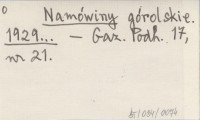 o
Namówiny górolskie.
1929... — Gaz. Podh. 17,
nr 21.